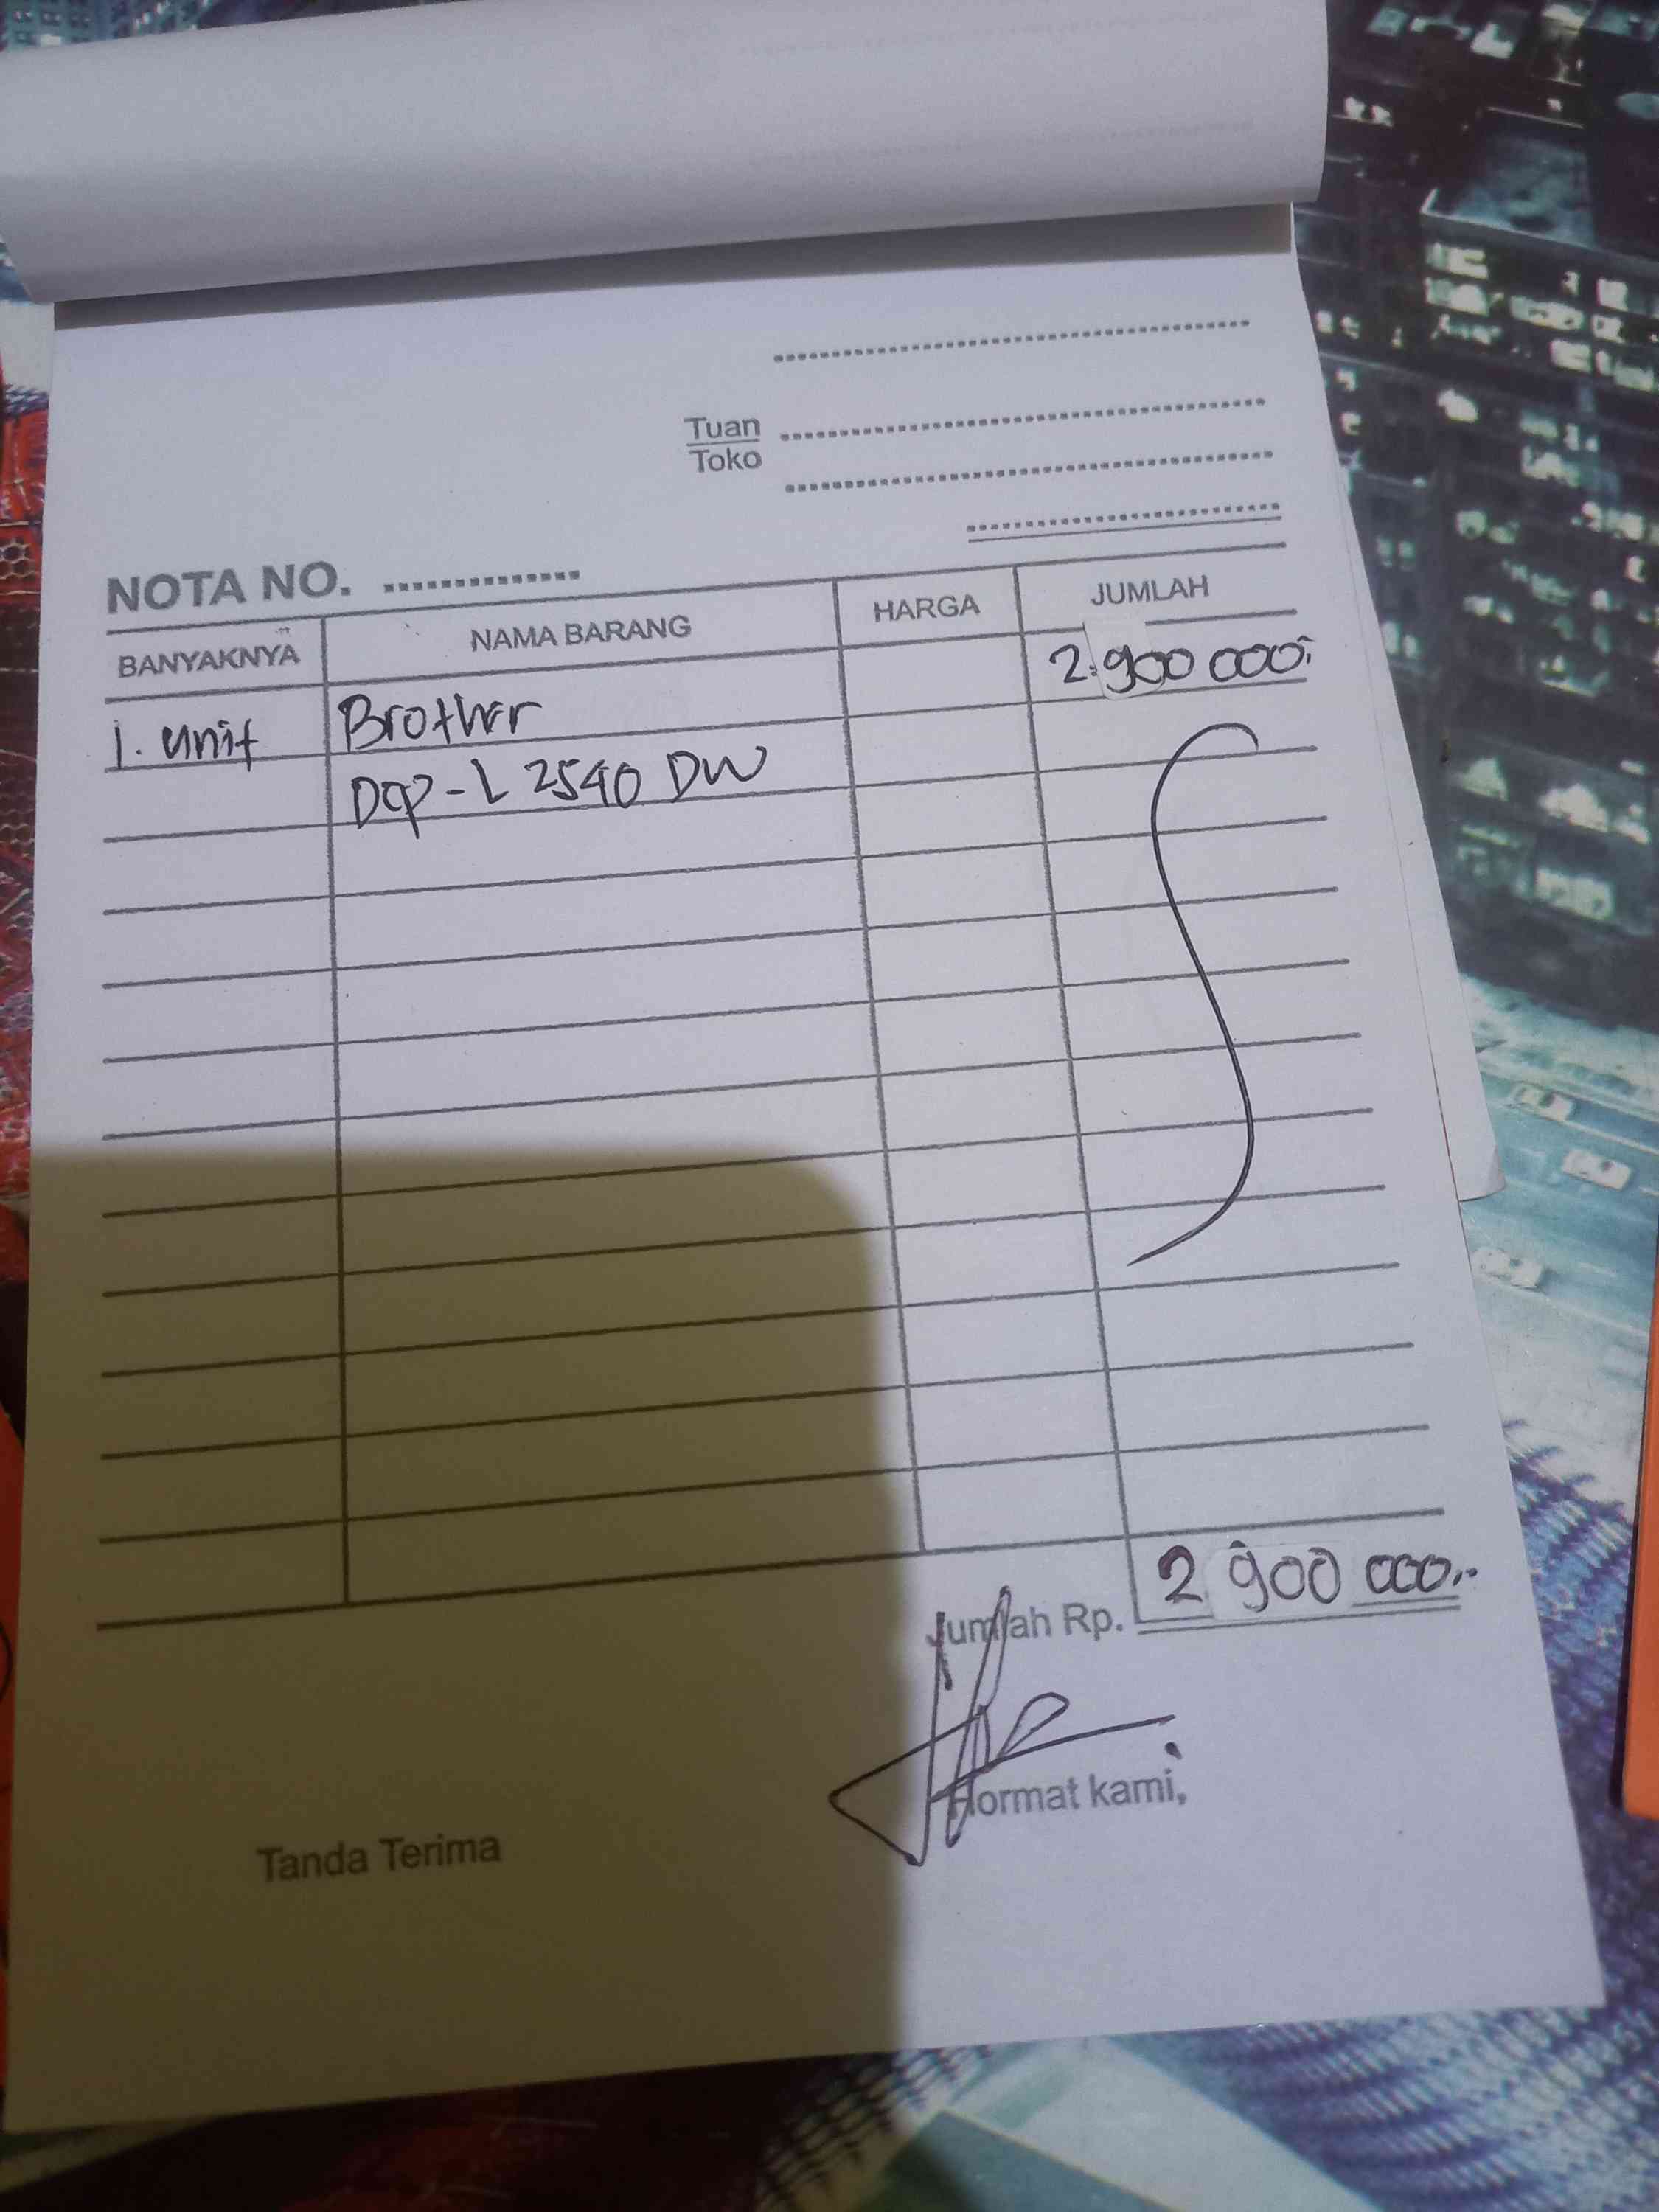 Tuan
Toko
NOTA NO.
BANYAKNYA NAMA BARANG HARGA JUMLAH
1. unit Brother 2.900 000,-
DCP-L 2540 DW
Jumlah Rp. 2 900 000,-
Hormat kami,
Tanda Terima